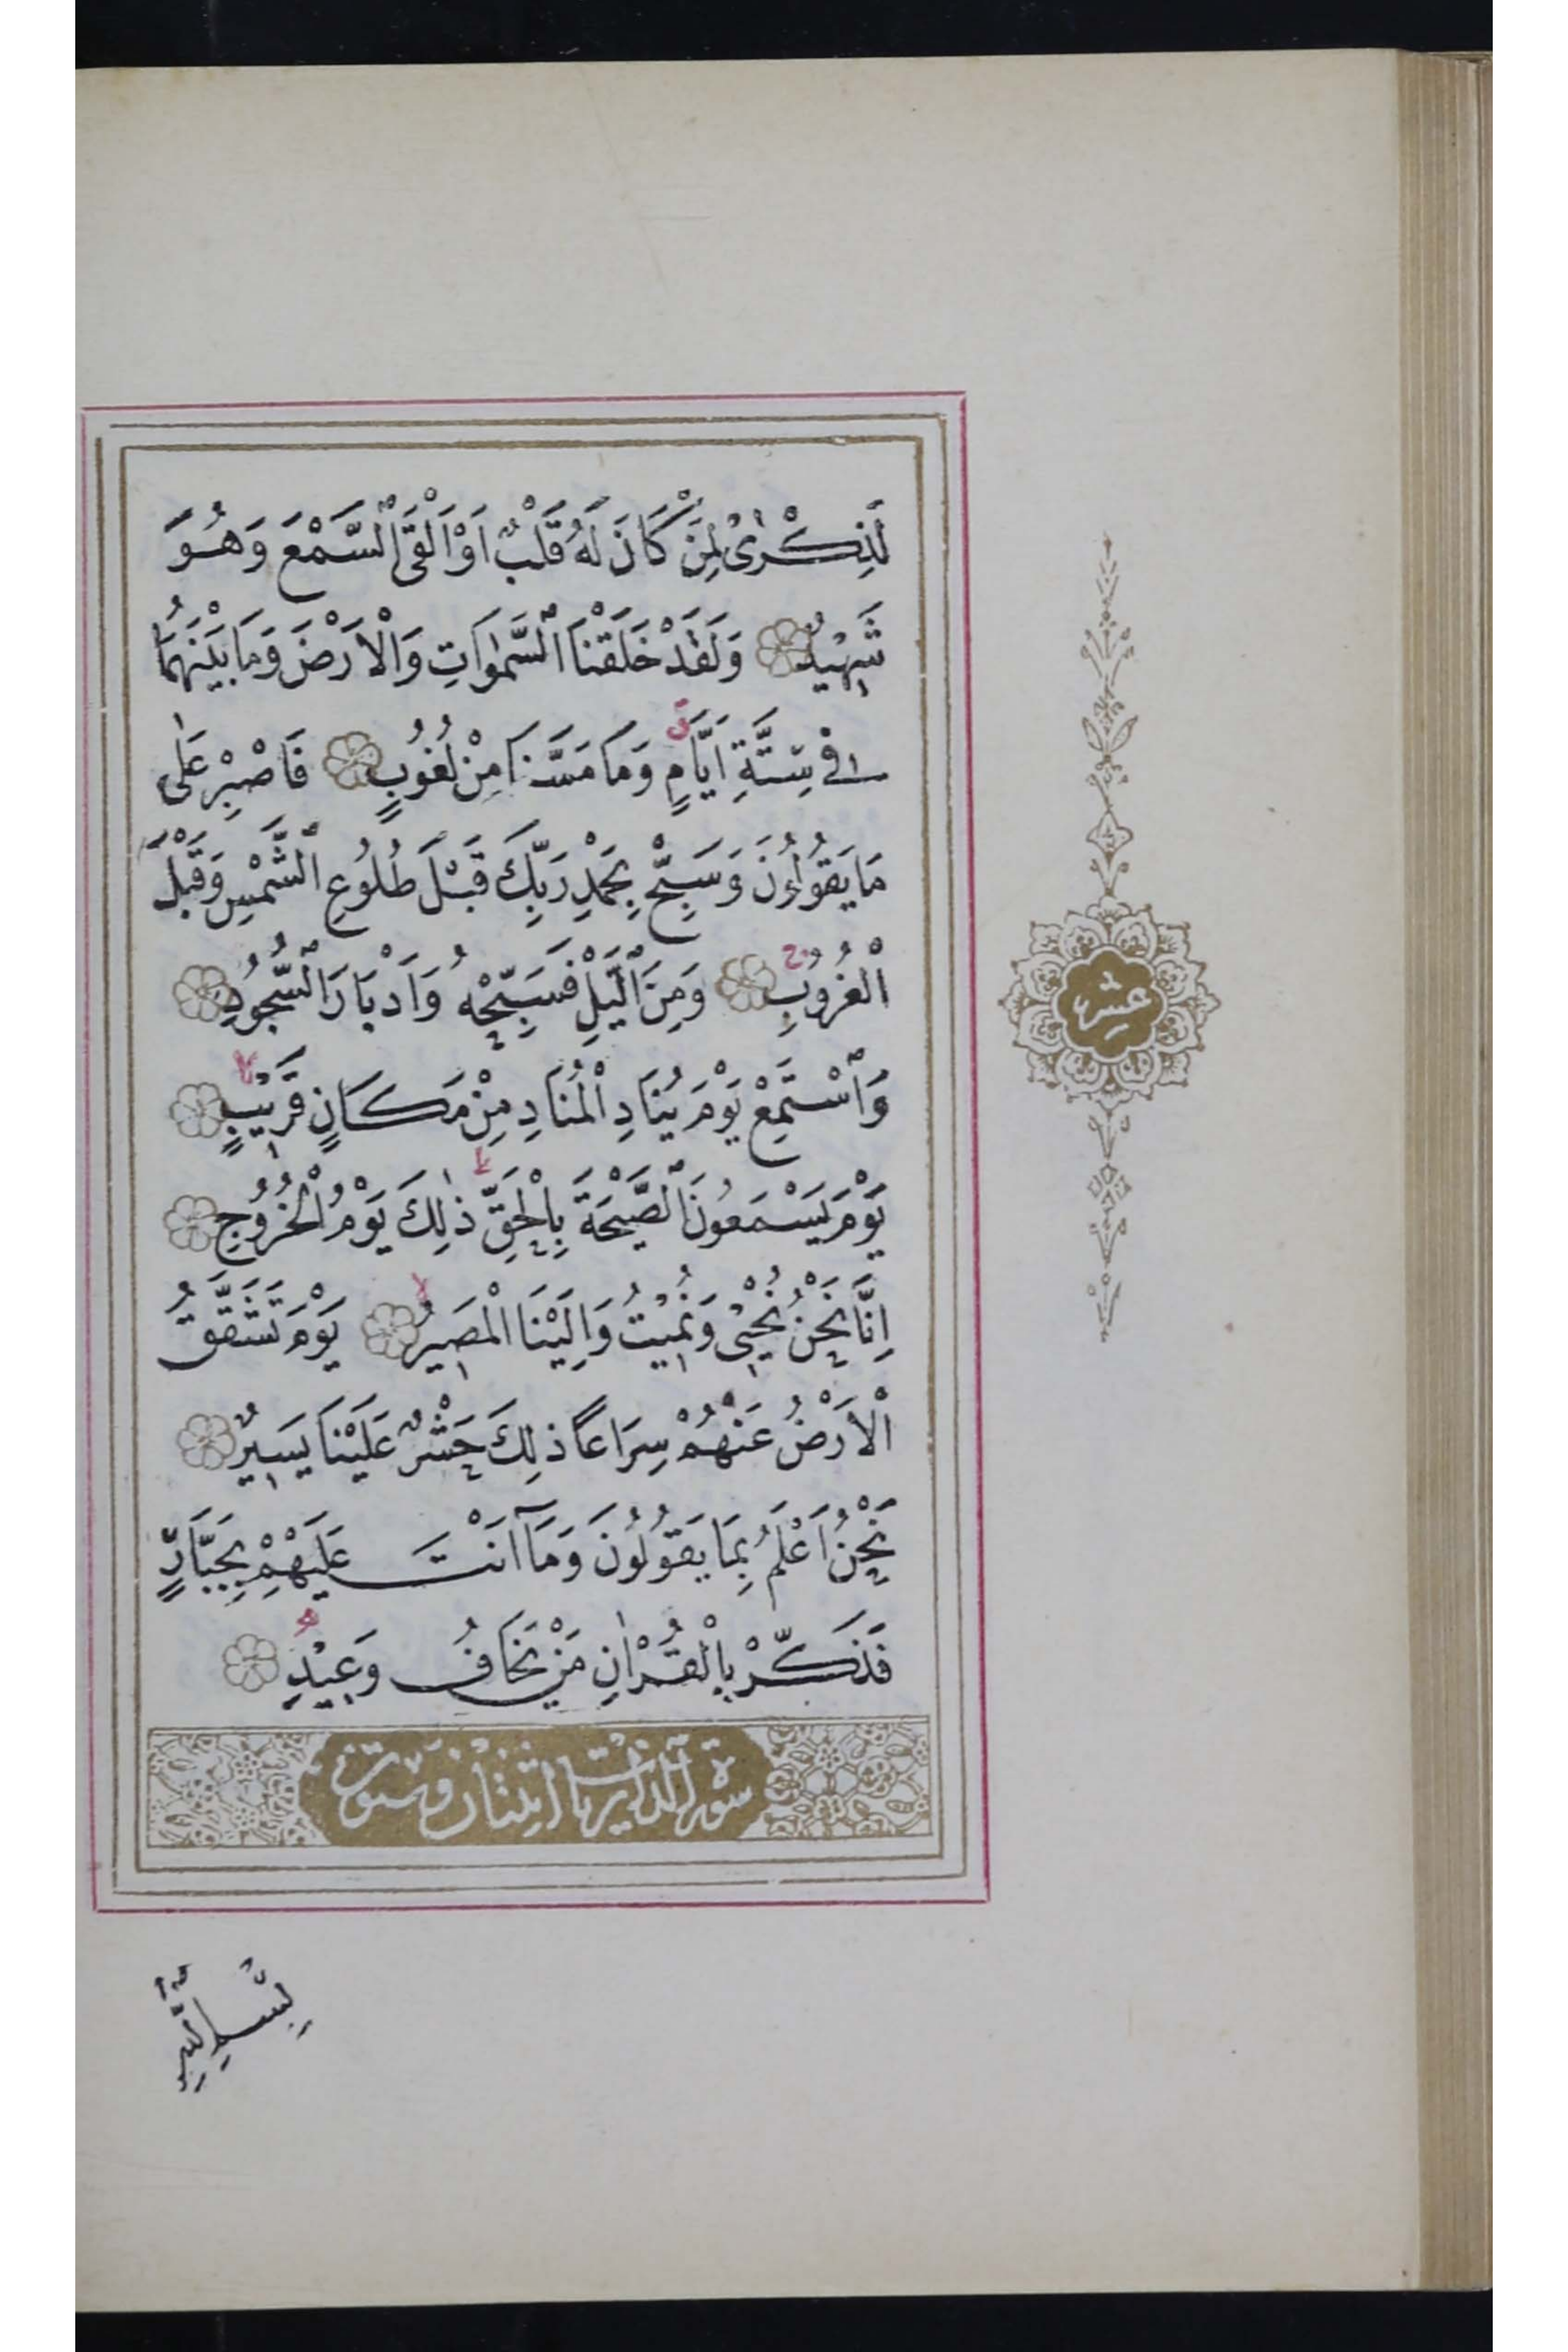 لَذِكْرٰى لِمَنْ كَانَ لَهُ قَلْبٌ اَوْ اَلْقَى السَّمْعَ وَهُوَ
شَهِيْدٌ وَلَقَدْ خَلَقْنَا السَّمٰوَاتِ وَالْاَرْضَ وَمَا بَيْنَهُمَا
فِىْ سِتَّةِ اَيَّامٍ ق وَمَا مَسَّنَا مِنْ لُغُوْبٍ فَاصْبِرْ عَلٰى
مَا يَقُوْلُوْنَ وَسَبِّحْ بِحَمْدِ رَبِّكَ قَبْلَ طُلُوْعِ الشَّمْسِ وَقَبْلَ
الْغُرُوْبِ ج وَمِنَ الَّيْلِ فَسَبِّحْهُ وَاَدْبَارَ السُّجُوْدِ
وَاسْتَمِعْ يَوْمَ يُنَادِ الْمُنَادِ مِنْ مَكَانٍ قَرِيْبٍ لا
يَوْمَ يَسْمَعُوْنَ الصَّيْحَةَ بِالْحَقِّ ط ذٰلِكَ يَوْمُ الْخُرُوْجِ
اِنَّا نَحْنُ نُحْيٖى وَنُمِيْتُ وَاِلَيْنَا الْمَصِيْرُ لا يَوْمَ تَشَقَّقُ
الْاَرْضُ عَنْهُمْ سِرَاعًا ذٰلِكَ حَشْرٌ عَلَيْنَا يَسِيْرٌ
نَحْنُ اَعْلَمُ بِمَا يَقُوْلُوْنَ وَمَآ اَنْتَ عَلَيْهِمْ بِجَبَّارٍ
فَذَكِّرْ بِالْقُرْاٰنِ مَنْ يَخَافُ وَعِيْدِ
سورة الذاريات وستون
عشر
بِسْمِ اللّٰهِ